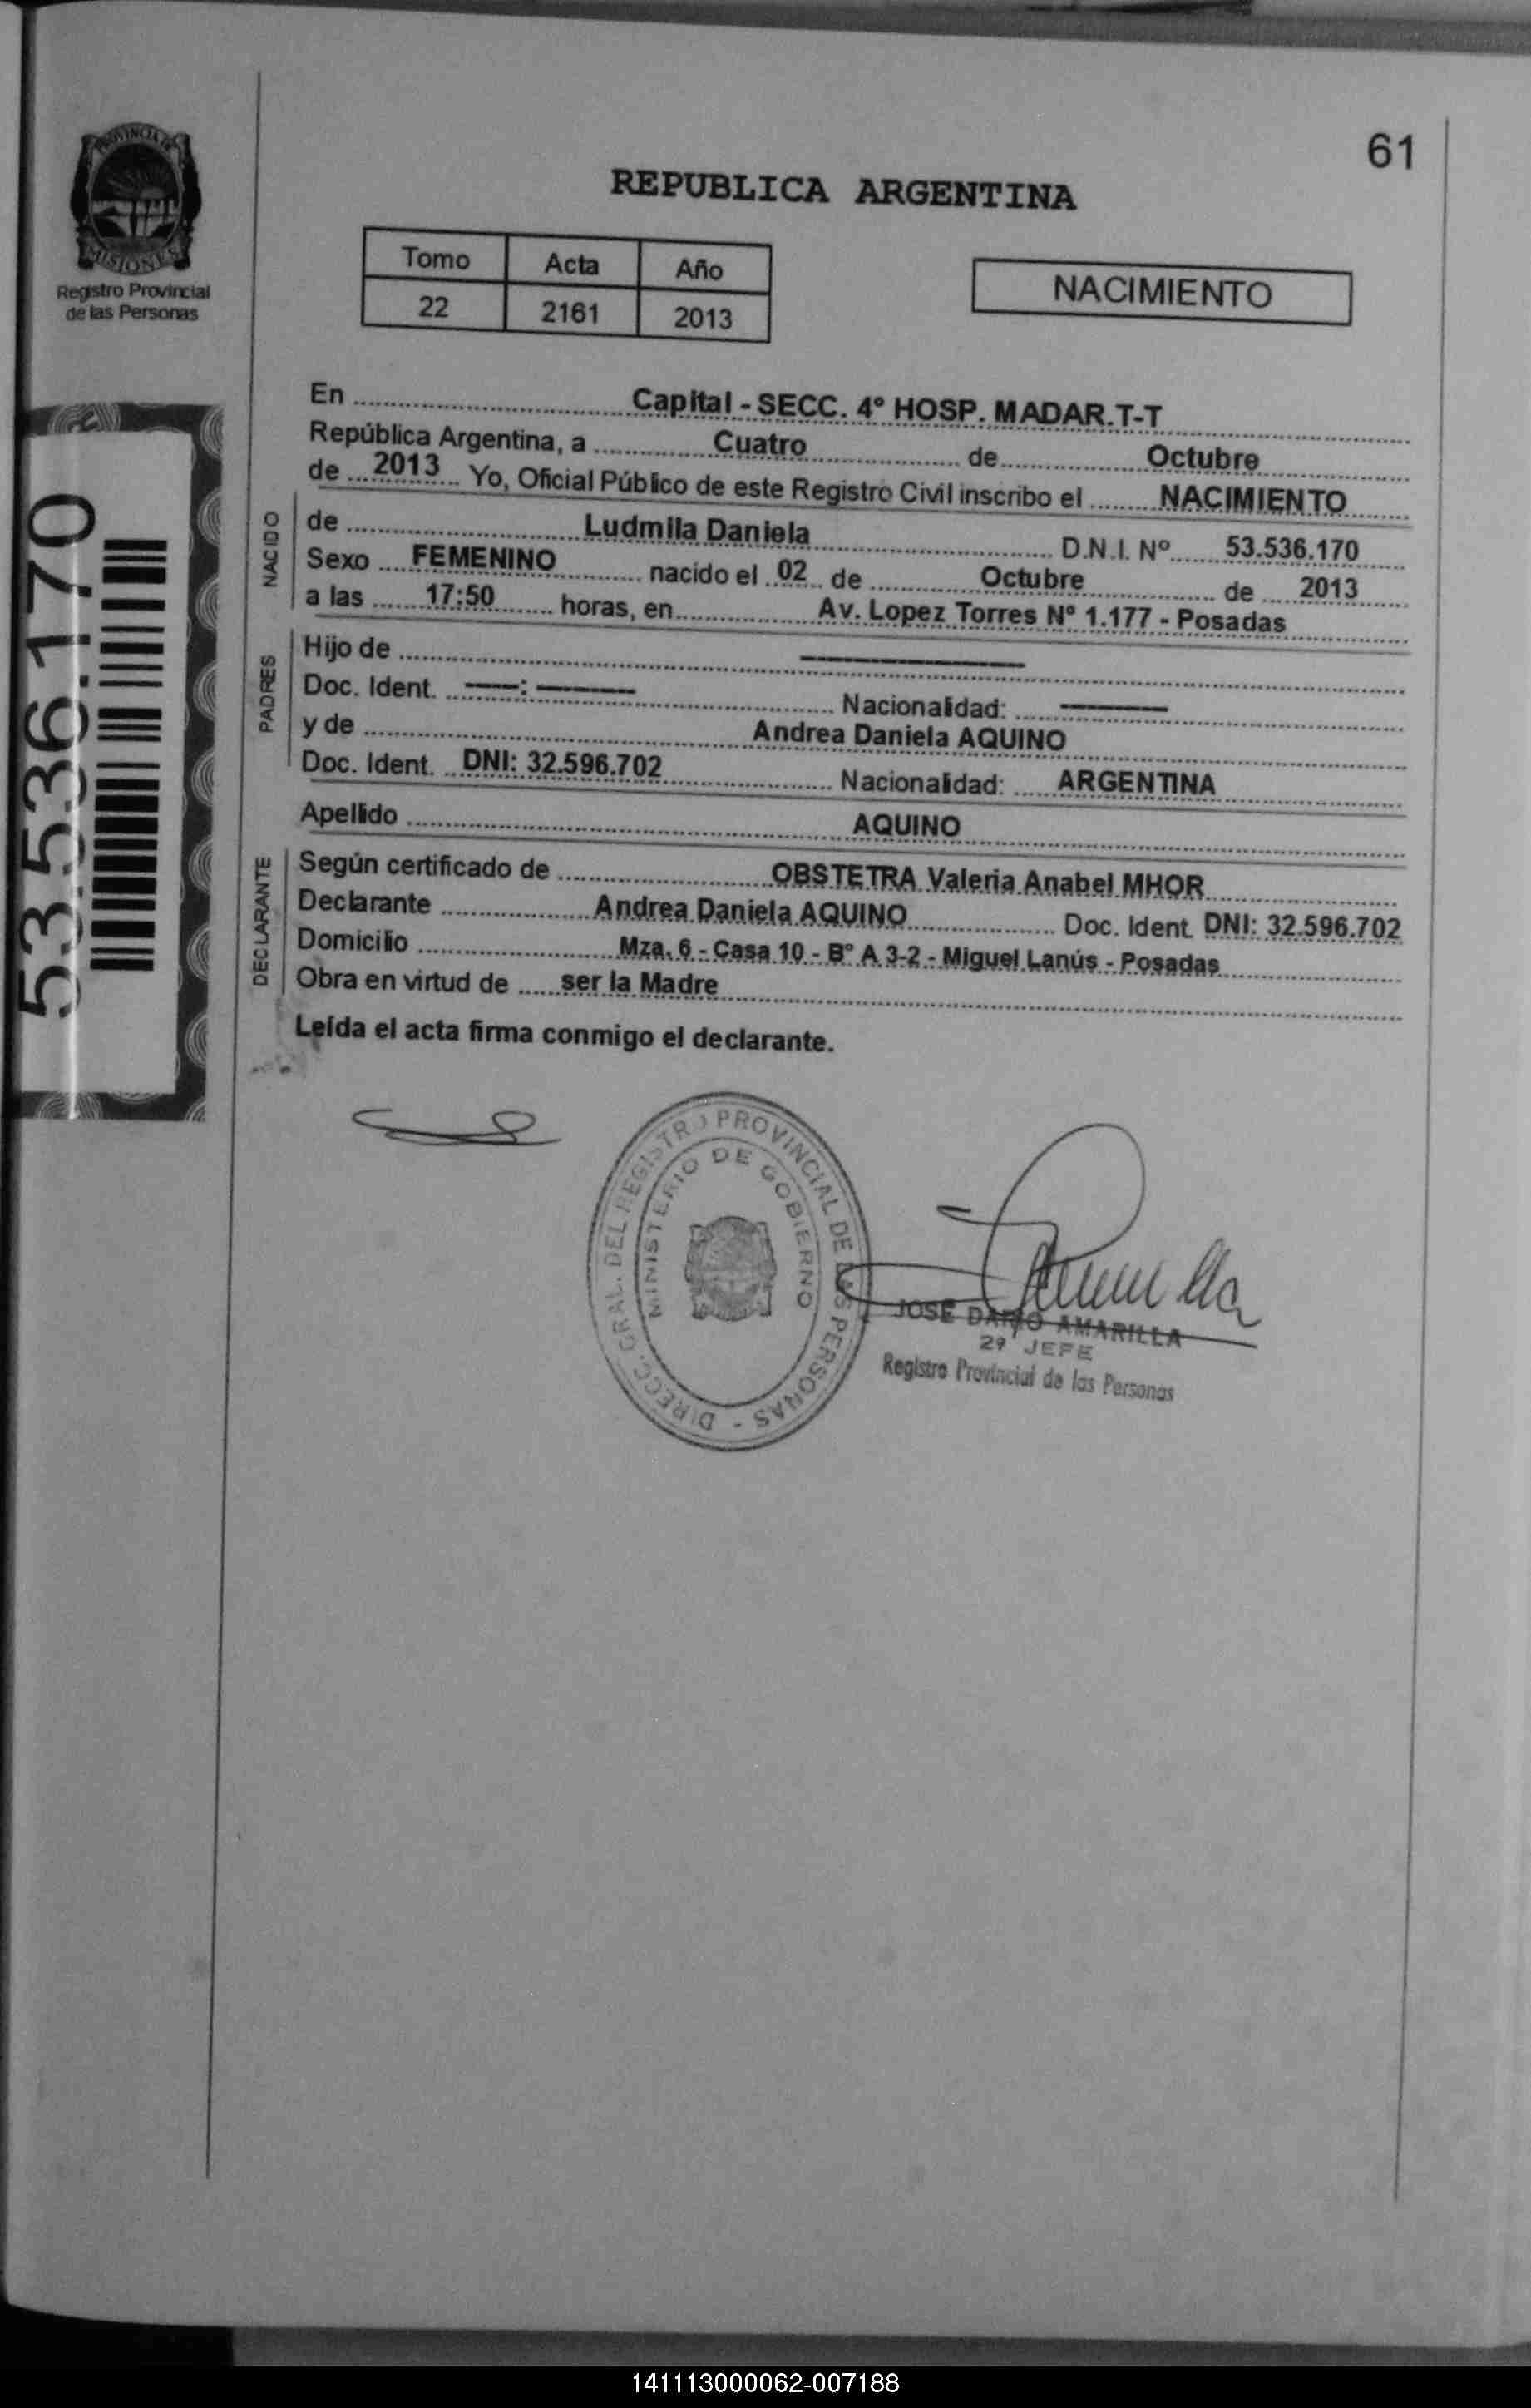 61
PROVINCIA DE
MISIONES
Registro Provincial
de las Personas
REPUBLICA ARGENTINA
Tomo Acta Año
22 2161 2013
NACIMIENTO
En Capital - SECC. 4º HOSP. MADAR.T-T
República Argentina, a Cuatro de Octubre
de 2013 Yo, Oficial Público de este Registro Civil inscribo el NACIMIENTO
NACIDO
de Ludmila Daniela D.N.I. Nº 53.536.170
Sexo FEMENINO nacido el 02 de Octubre de 2013
a las 17:50 horas, en Av. Lopez Torres Nº 1.177 - Posadas
PADRES
Hijo de ————
Doc. Ident. ——: ———— Nacionalidad: ————
y de Andrea Daniela AQUINO
Doc. Ident. DNI: 32.596.702 Nacionalidad: ARGENTINA
Apellido AQUINO
DECLARANTE
Según certificado de OBSTETRA Valeria Anabel MHOR
Declarante Andrea Daniela AQUINO Doc. Ident. DNI: 32.596.702
Domicilio Mza. 6 - Casa 10 - Bº A 3-2 - Miguel Lanús - Posadas
Obra en virtud de ser la Madre
Leída el acta firma conmigo el declarante.
53.536.170
DIRECC. GRAL. DEL REGISTRO PROVINCIAL DE LAS PERSONAS -
MINISTERIO DE GOBIERNO
JOSE DARIO AMARILLA
2º JEFE
Registro Provincial de las Personas
141113000062-007188